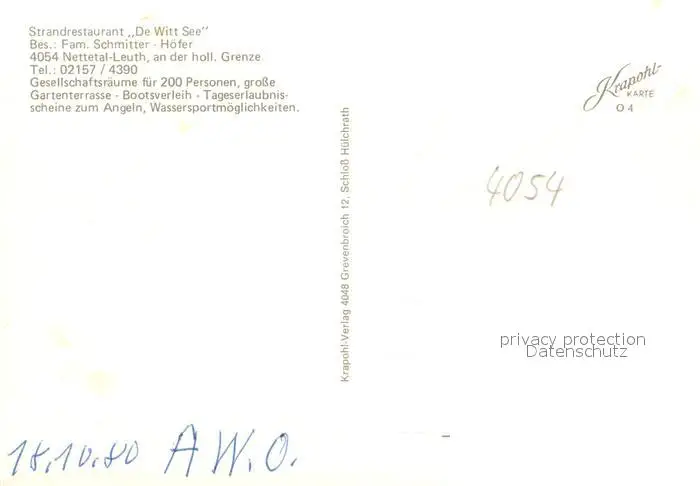 Strandrestaurant „De Witt See"
Bes.: Fam. Schmitter - Höfer
4054 Nettetal-Leuth, an der holl. Grenze
Tel.: 02157 / 4390
Gesellschaftsräume für 200 Personen, große
Gartenterrasse - Bootsverleih - Tageserlaubnis-
scheine zum Angeln, Wassersportmöglichkeiten.
Krapohl-Verlag 4048 Grevenbroich 12, Schloß Hülchrath
Krapohl-
KARTE
O 4
4054
privacy protection
Datenschutz
18.10.80 A.W.O.